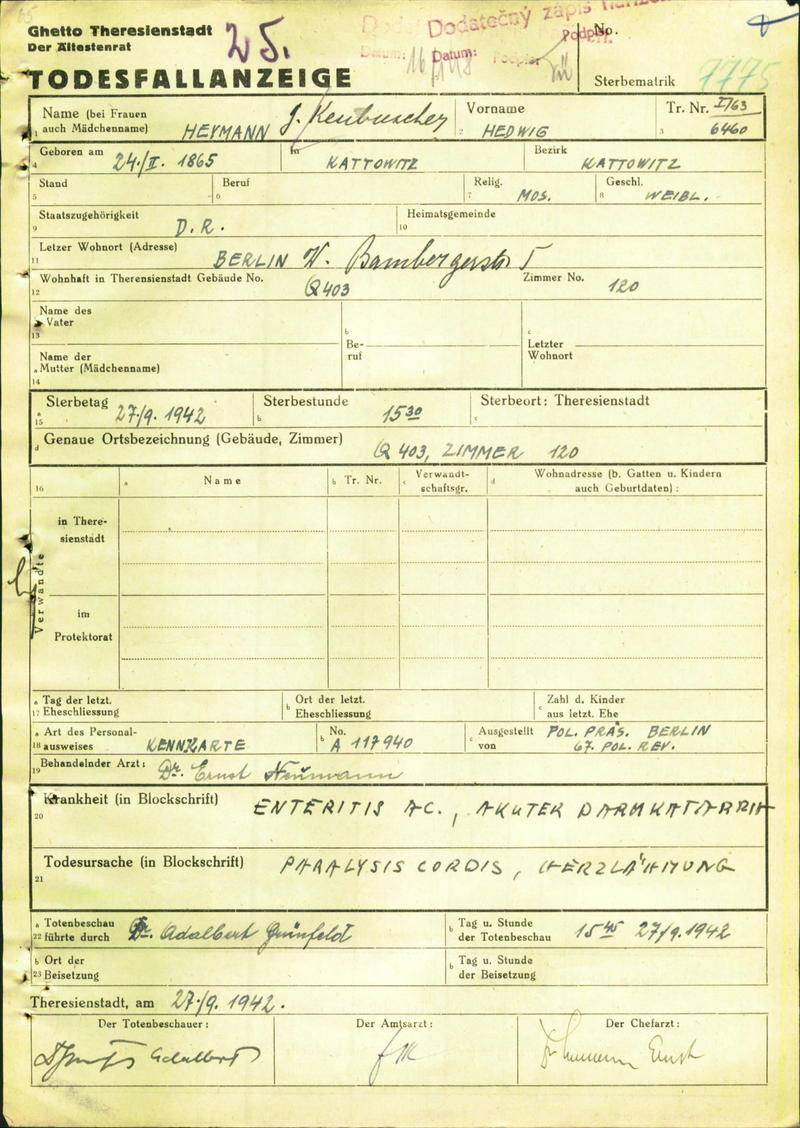 Ghetto Theresienstadt
Der Ältestenrat
25.
Dodatečný zápis
Datum:
Podpis:
No.
TODESFALLANZEIGE
Sterbematrik 7775
Name (bei Frauen
auch Mädchenname) HEYMANN
1
Vorname
2 HEDWIG
Tr. Nr. I/63
3 6460
Geboren am 24./II. 1865
4
In KATTOWITZ
Bezirk KATTOWITZ
Stand
5
Beruf
6
Relig. MOS.
7
Geschl. WEIBL.
8
Staatszugehörigkeit D. R.
9
Heimatsgemeinde
10
Letzer Wohnort (Adresse) BERLIN W. Bambergerstr. 5
11
Wohnhaft in Therensienstadt Gebäude No. Q 403 Zimmer No. 120
12
Name des
a Vater
13
b
Be-
ruf
c
Letzter
Wohnort
Name der
a Mutter (Mädchenname)
14
a Sterbetag 27./9. 1942
15
b Sterbestunde 15 30
c Sterbeort: Theresienstadt
d Genaue Ortsbezeichnung (Gebäude, Zimmer) Q 403, ZIMMER 120
16
a Name
b Tr. Nr.
c Verwandt-
schaftsgr.
d Wohnadresse (b. Gatten u. Kindern
auch Geburtdaten):
Verwandte
in There-
sienstadt
im
Protektorat
a Tag der letzt.
17 Eheschliessung
b Ort der letzt.
Eheschliessung
c Zahl d. Kinder
aus letzt. Ehe
a Art des Personal-
18 ausweises KENNKARTE
b No. A 117940
c Ausgestellt
von
POL. PRÄS. BERLIN
67. POL. REV.
Behandelnder Arzt: Dr. Ernst Neumann
19
Krankheit (in Blockschrift) ENTERITIS AC., AKUTER DARMKATARRH
20
Todesursache (in Blockschrift) PARALYSIS CORDIS, HERZLÄHMUNG
21
a Totenbeschau
22 führte durch Dr. Adalbert Grünfeld
b Tag u. Stunde
der Totenbeschau 15 45 27/9. 1942
b Ort der
23 Beisetzung
b Tag u. Stunde
der Beisetzung
Theresienstadt, am 27./9. 1942.
Der Totenbeschauer:
Der Amtsarzt:
Der Chefarzt: